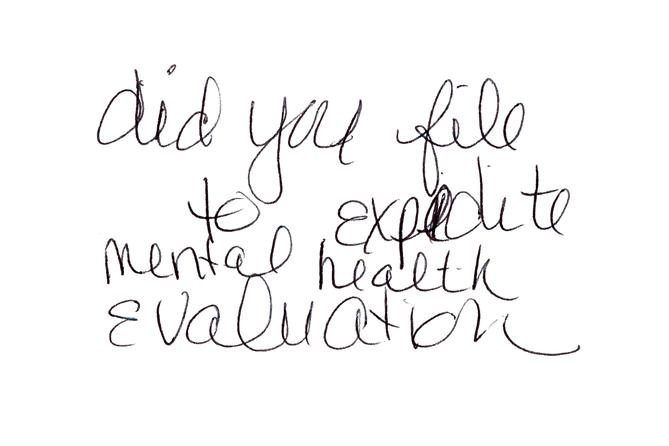 did you file
to expedite
mental health
Evaluation